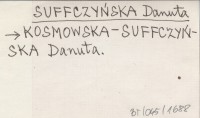 SUFFCZYŃSKA Danuta
→ KOSMOWSKA-SUFFCZYŃ-
SKA Danuta.
BT/045/1688